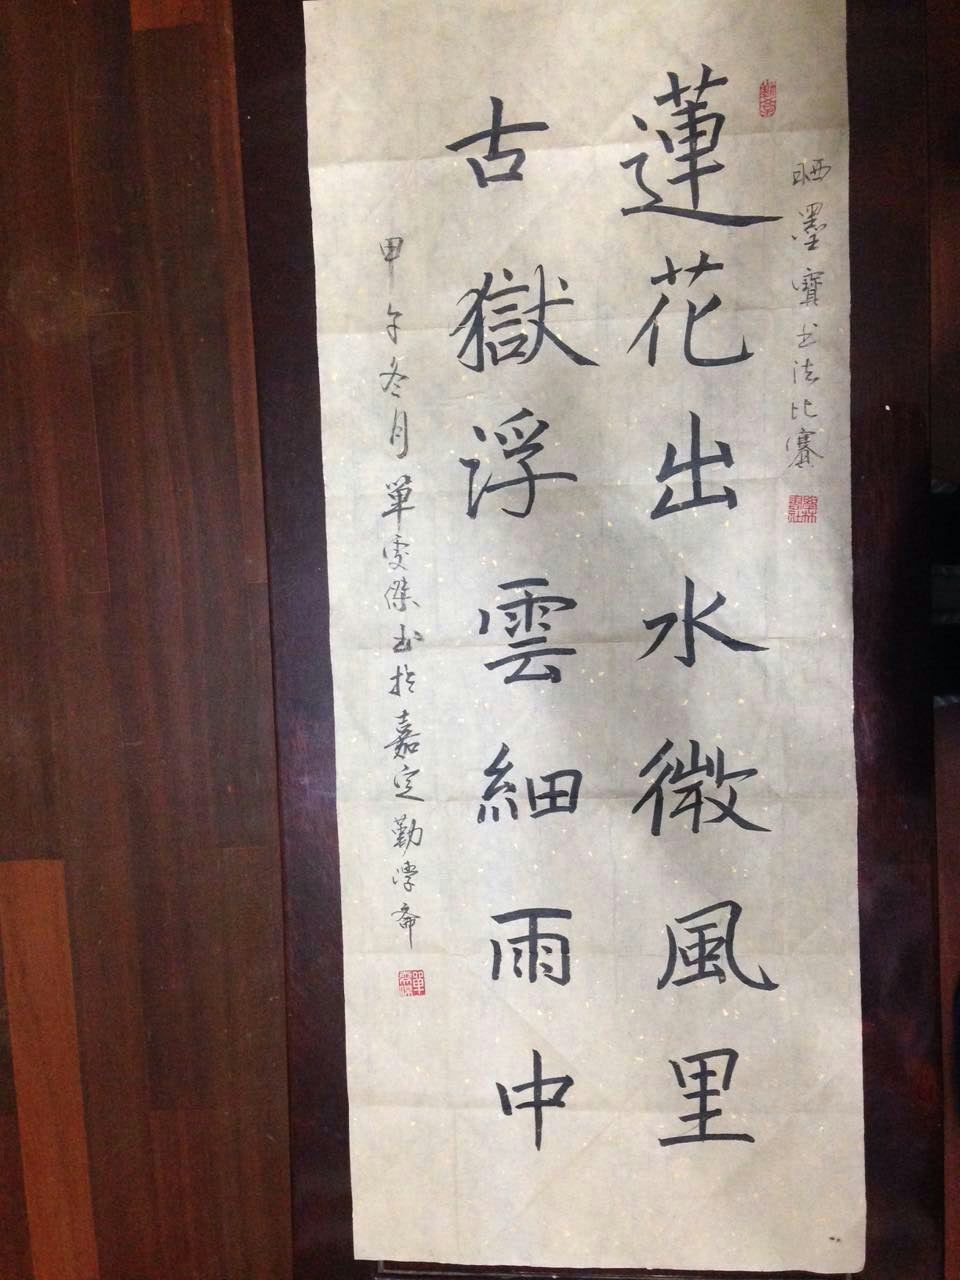 晒墨寶书法比賽
蓮花出水微風里
古嶽浮雲細雨中
甲午冬月單雯傑书於嘉定勤学斋